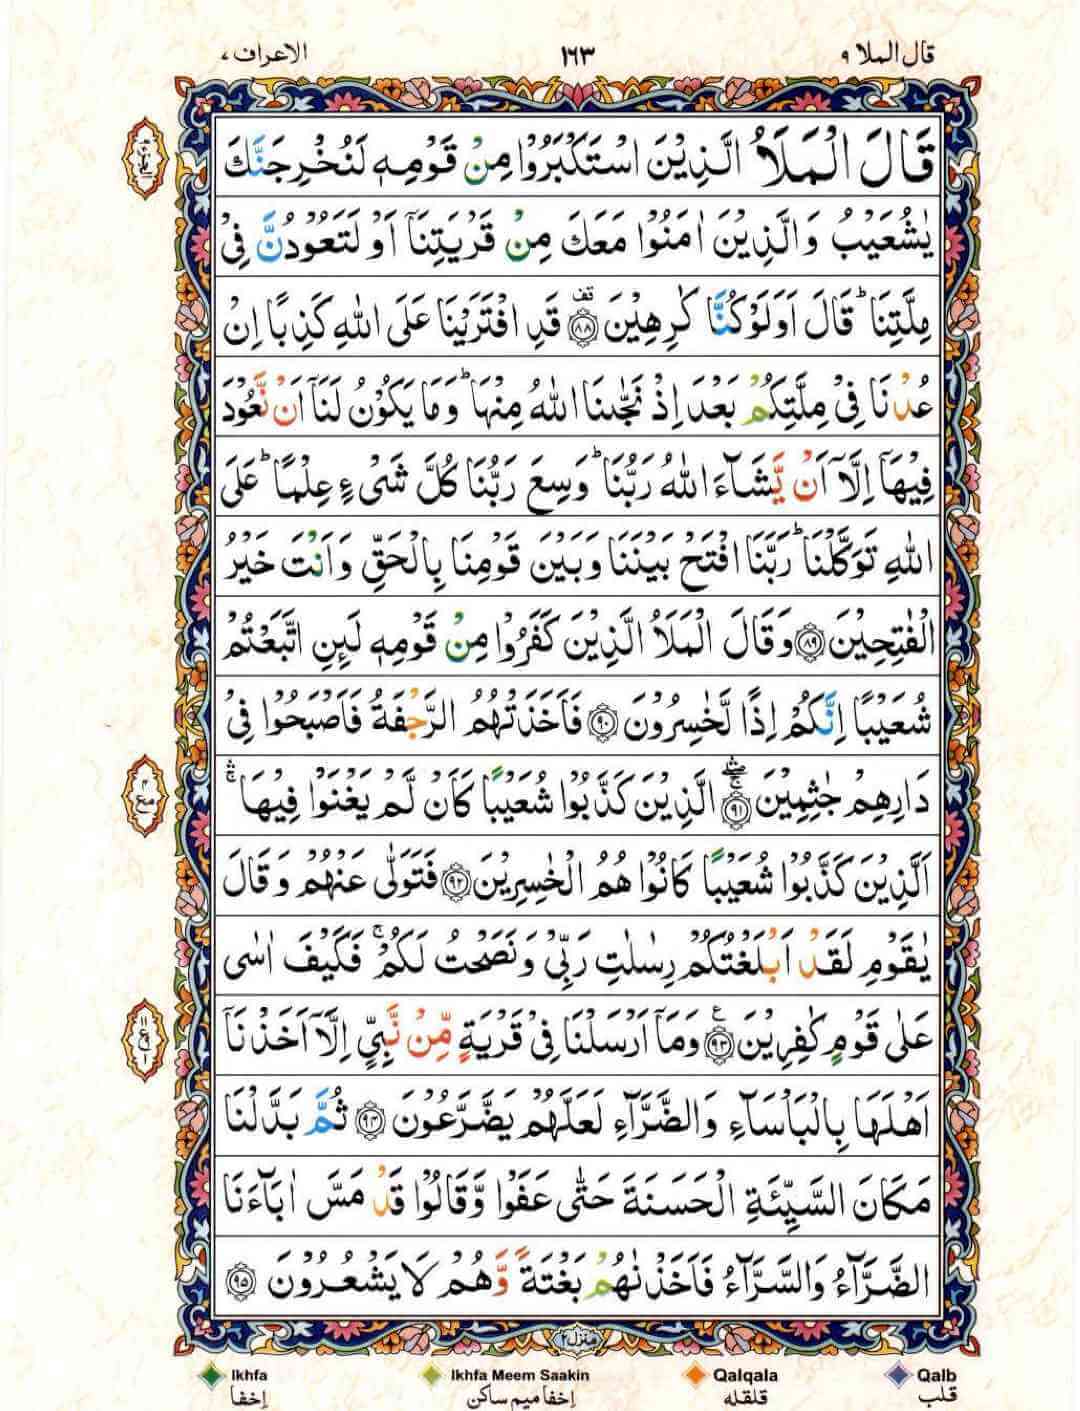 قال الملا ٩ ١٦٣ الاعراف ٧
قَالَ الْمَلَاُ الَّذِيْنَ اسْتَكْبَرُوْا مِنْ قَوْمِهٖ لَنُخْرِجَنَّكَ
يٰشُعَيْبُ وَالَّذِيْنَ اٰمَنُوْا مَعَكَ مِنْ قَرْيَتِنَاۤ اَوْ لَتَعُوْدُنَّ فِيْ
مِلَّتِنَا ؕ قَالَ اَوَلَوْ كُنَّا كٰرِهِيْنَ ۟ۚ ﴿٨٨﴾ قَدِ افْتَرَيْنَا عَلَى اللّٰهِ كَذِبًا اِنْ
عُدْنَا فِيْ مِلَّتِكُمْ بَعْدَ اِذْ نَجّٰىنَا اللّٰهُ مِنْهَا ؕ وَمَا يَكُوْنُ لَنَاۤ اَنْ نَّعُوْدَ
فِيْهَاۤ اِلَّاۤ اَنْ يَّشَآءَ اللّٰهُ رَبُّنَا ؕ وَسِعَ رَبُّنَا كُلَّ شَيْءٍ عِلْمًا ؕ عَلَى
اللّٰهِ تَوَكَّلْنَا ؕ رَبَّنَا افْتَحْ بَيْنَنَا وَبَيْنَ قَوْمِنَا بِالْحَقِّ وَاَنْتَ خَيْرُ
الْفٰتِحِيْنَ ﴿٨٩﴾ وَقَالَ الْمَلَاُ الَّذِيْنَ كَفَرُوْا مِنْ قَوْمِهٖ لَئِنِ اتَّبَعْتُمْ
شُعَيْبًا اِنَّكُمْ اِذًا لَّخٰسِرُوْنَ ﴿٩٠﴾ فَاَخَذَتْهُمُ الرَّجْفَةُ فَاَصْبَحُوْا فِيْ
دَارِهِمْ جٰثِمِيْنَ ﴿٩١﴾ الَّذِيْنَ كَذَّبُوْا شُعَيْبًا كَاَنْ لَّمْ يَغْنَوْا فِيْهَا ۛ
اَلَّذِيْنَ كَذَّبُوْا شُعَيْبًا كَانُوْا هُمُ الْخٰسِرِيْنَ ﴿٩٢﴾ فَتَوَلّٰى عَنْهُمْ وَقَالَ
يٰقَوْمِ لَقَدْ اَبْلَغْتُكُمْ رِسٰلٰتِ رَبِّيْ وَنَصَحْتُ لَكُمْ ۚ فَكَيْفَ اٰسٰى
عَلٰى قَوْمٍ كٰفِرِيْنَ ﴿٩٣﴾ وَمَاۤ اَرْسَلْنَا فِيْ قَرْيَةٍ مِّنْ نَّبِيٍّ اِلَّاۤ اَخَذْنَاۤ
اَهْلَهَا بِالْبَاْسَآءِ وَالضَّرَّآءِ لَعَلَّهُمْ يَضَّرَّعُوْنَ ﴿٩٤﴾ ثُمَّ بَدَّلْنَا
مَكَانَ السَّيِّئَةِ الْحَسَنَةَ حَتّٰى عَفَوْا وَّقَالُوْا قَدْ مَسَّ اٰبَآءَنَا
الضَّرَّآءُ وَالسَّرَّآءُ فَاَخَذْنٰهُمْ بَغْتَةً وَّهُمْ لَا يَشْعُرُوْنَ ﴿٩٥﴾
منزل ٢
Ikhfa Ikhfa Meem Saakin Qalqala Qalb
إخفا إخفا ميم ساكن قلقله قلب